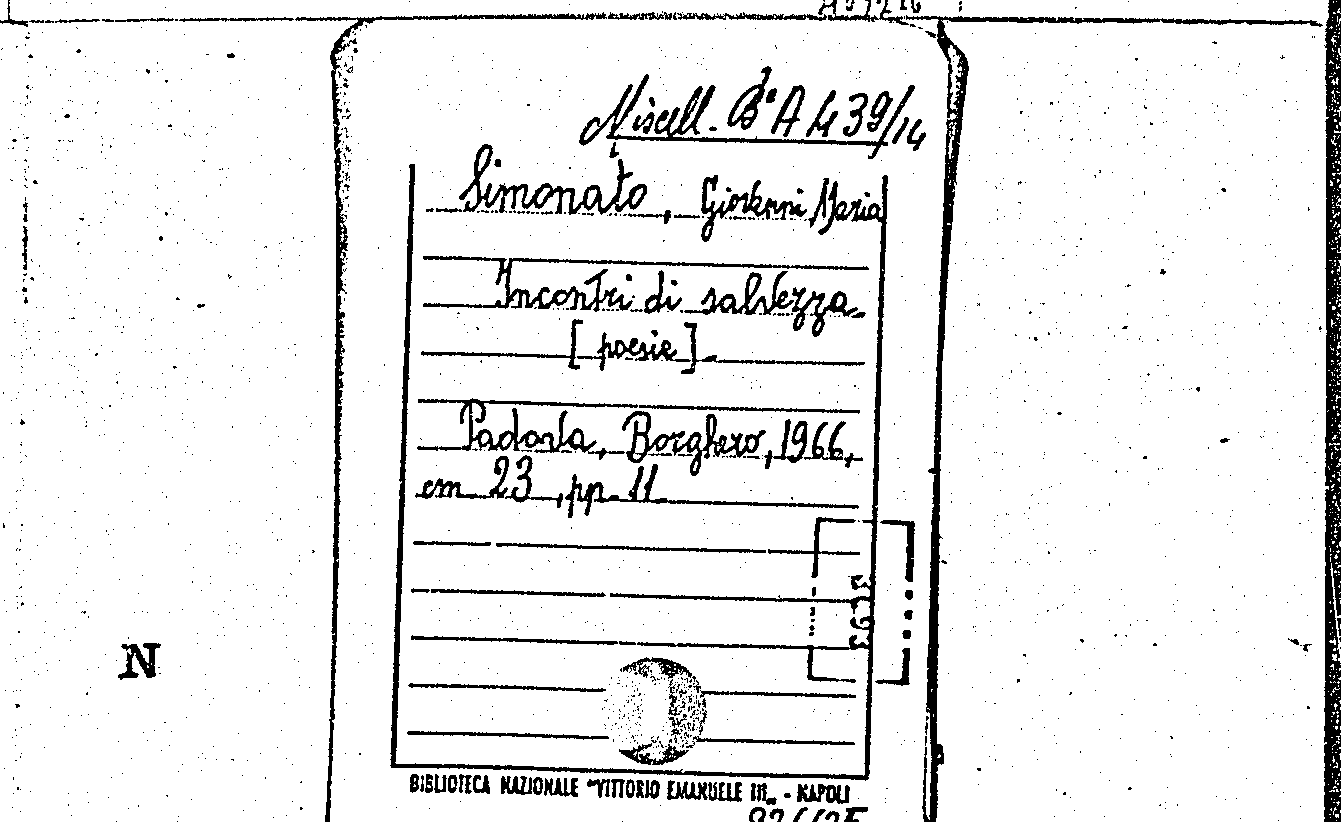 Miscell. Bª A 439/14
Simonato, Giovanni Maria
Incontri di salvezza.
[poesie].
Padova, Borghero, 1966,
cm 23, pp. 11
N
BIBLIOTECA NAZIONALE "VITTORIO EMANUELE III" - NAPOLI